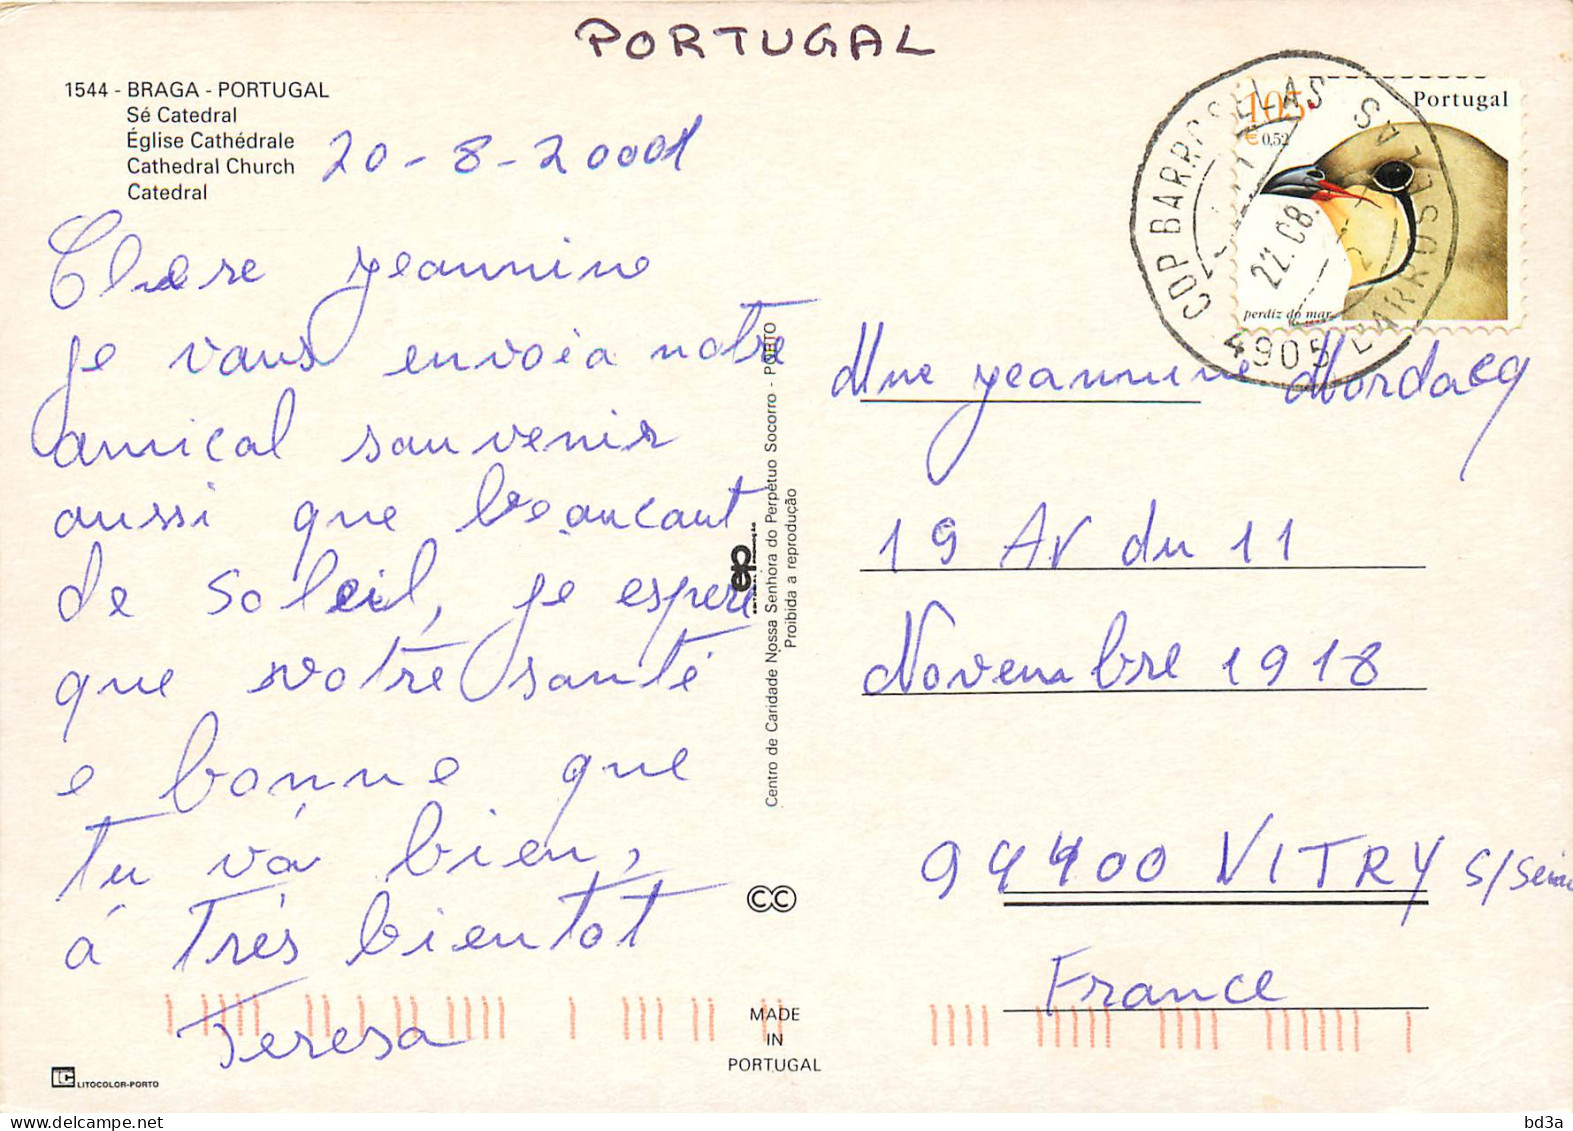 PORTUGAL
1544 - BRAGA - PORTUGAL
Sé Catedral
Église Cathédrale
Cathedral Church
Catedral
20-8-20001
Chère yeannine
je vaus envoia notre
amical sauvenir
aussi que beaucaut
de soleil, je espere
que votre santé
e bonne que
tu vá bien,
á Trés bientot
Teresa
LITOCOLOR-PORTO
Centro de Caridade Nossa Senhora do Perpétuo Socorro - PORTO
Proibida a reprodução
ep
CC
MADE
IN
PORTUGAL
105
€ 0,52
Portugal
perdiz do mar
CDP BARROSELAS
22.08.
4905 BARROSELAS
Mme yeannine Mordacq
19 AV du 11
Novembre 1918
94400 VITRY s/Seine
France
bd3a